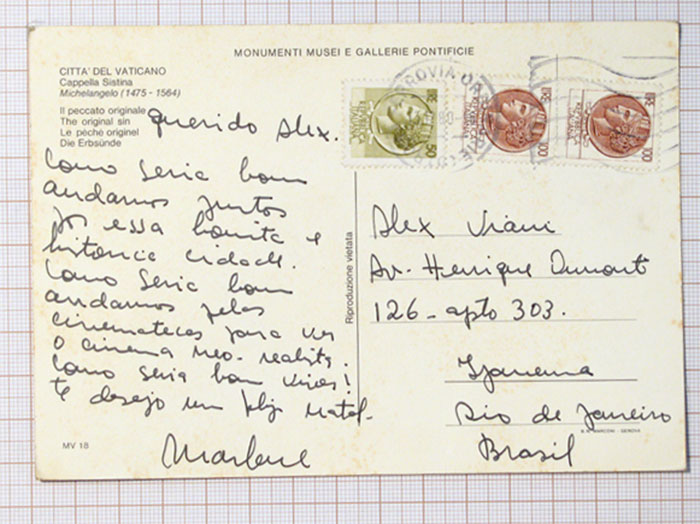 MONUMENTI MUSEI E GALLERIE PONTIFICIE
CITTA' DEL VATICANO
Cappella Sistina
Michelangelo (1475 - 1564)
Il peccato originale
The original sin
Le péché originel
Die Erbsünde
querido Alex.
Como seria bom
andarmos juntos
por essa bonita e
historica cidade.
Como seria bom
andarmos pelas
cinematecas para ver
o cinema neo-realista.
Como seria bom viver!
te desejo um feliz natal.
Marlene
MV 18
Riproduzione vietata
50
LIRE
100
LIRE
100
Alex Viani
Av. Henrique Dumont
126 - apto 303.
Ipanema
Rio de Janeiro
Brasil
MARCONI - GENOVA